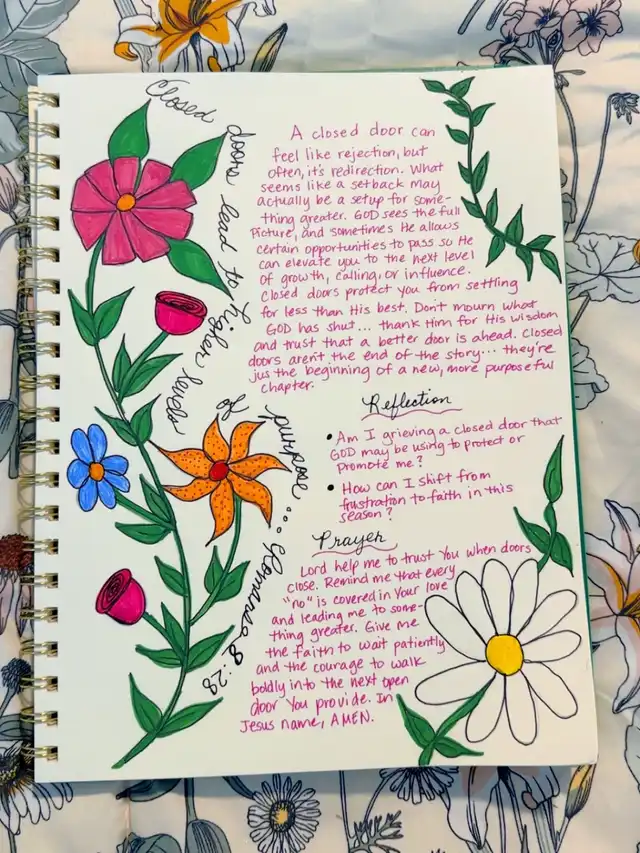 Closed doors lead to higher levels of purpose... Romans 8:28
A closed door can
feel like rejection, but
often, it's redirection. What
seems like a setback may
actually be a setup for some-
thing greater. GOD sees the full
picture, and sometimes He allows
certain opportunities to pass so He
can elevate you to the next level
of growth, calling, or influence.
Closed doors protect you from settling
for less than His best. Don't mourn what
GOD has shut... thank Him for His wisdom
and trust that a better door is ahead. Closed
doors aren't the end of the story... they're
jus the beginning of a new, more purposeful
chapter.
Reflection
• Am I grieving a closed door that
GOD may be using to protect or
promote me?
• How can I shift from
frustration to faith in this
season?
Prayer
Lord help me to trust You when doors
close. Remind me that every
"no" is covered in Your love
and leading me to some-
thing greater. Give me
the faith to wait patiently
and the courage to walk
boldly into the next open
door You provide. In
Jesus name, AMEN.